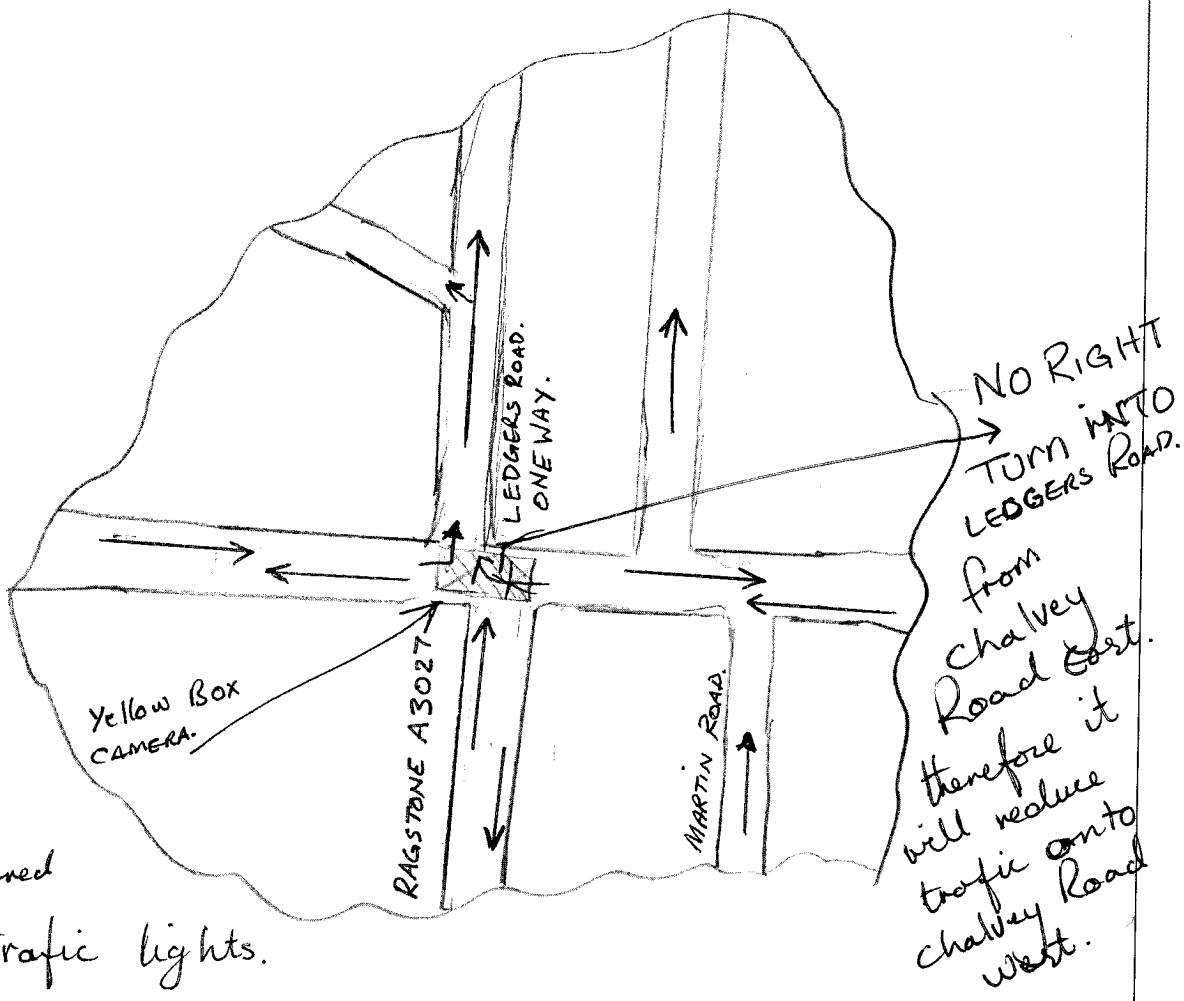 LEDGERS ROAD.
ONE WAY.
NO RIGHT
TURN iNTO
LEDGERS ROAD.
from
chalvey
Road East.
therefore it
will reduce
trafic onto
chalvey Road
west.
Yellow Box
CAMERA.
RAGSTONE A3027
MARTIN ROAD.
ned
rafic lights.